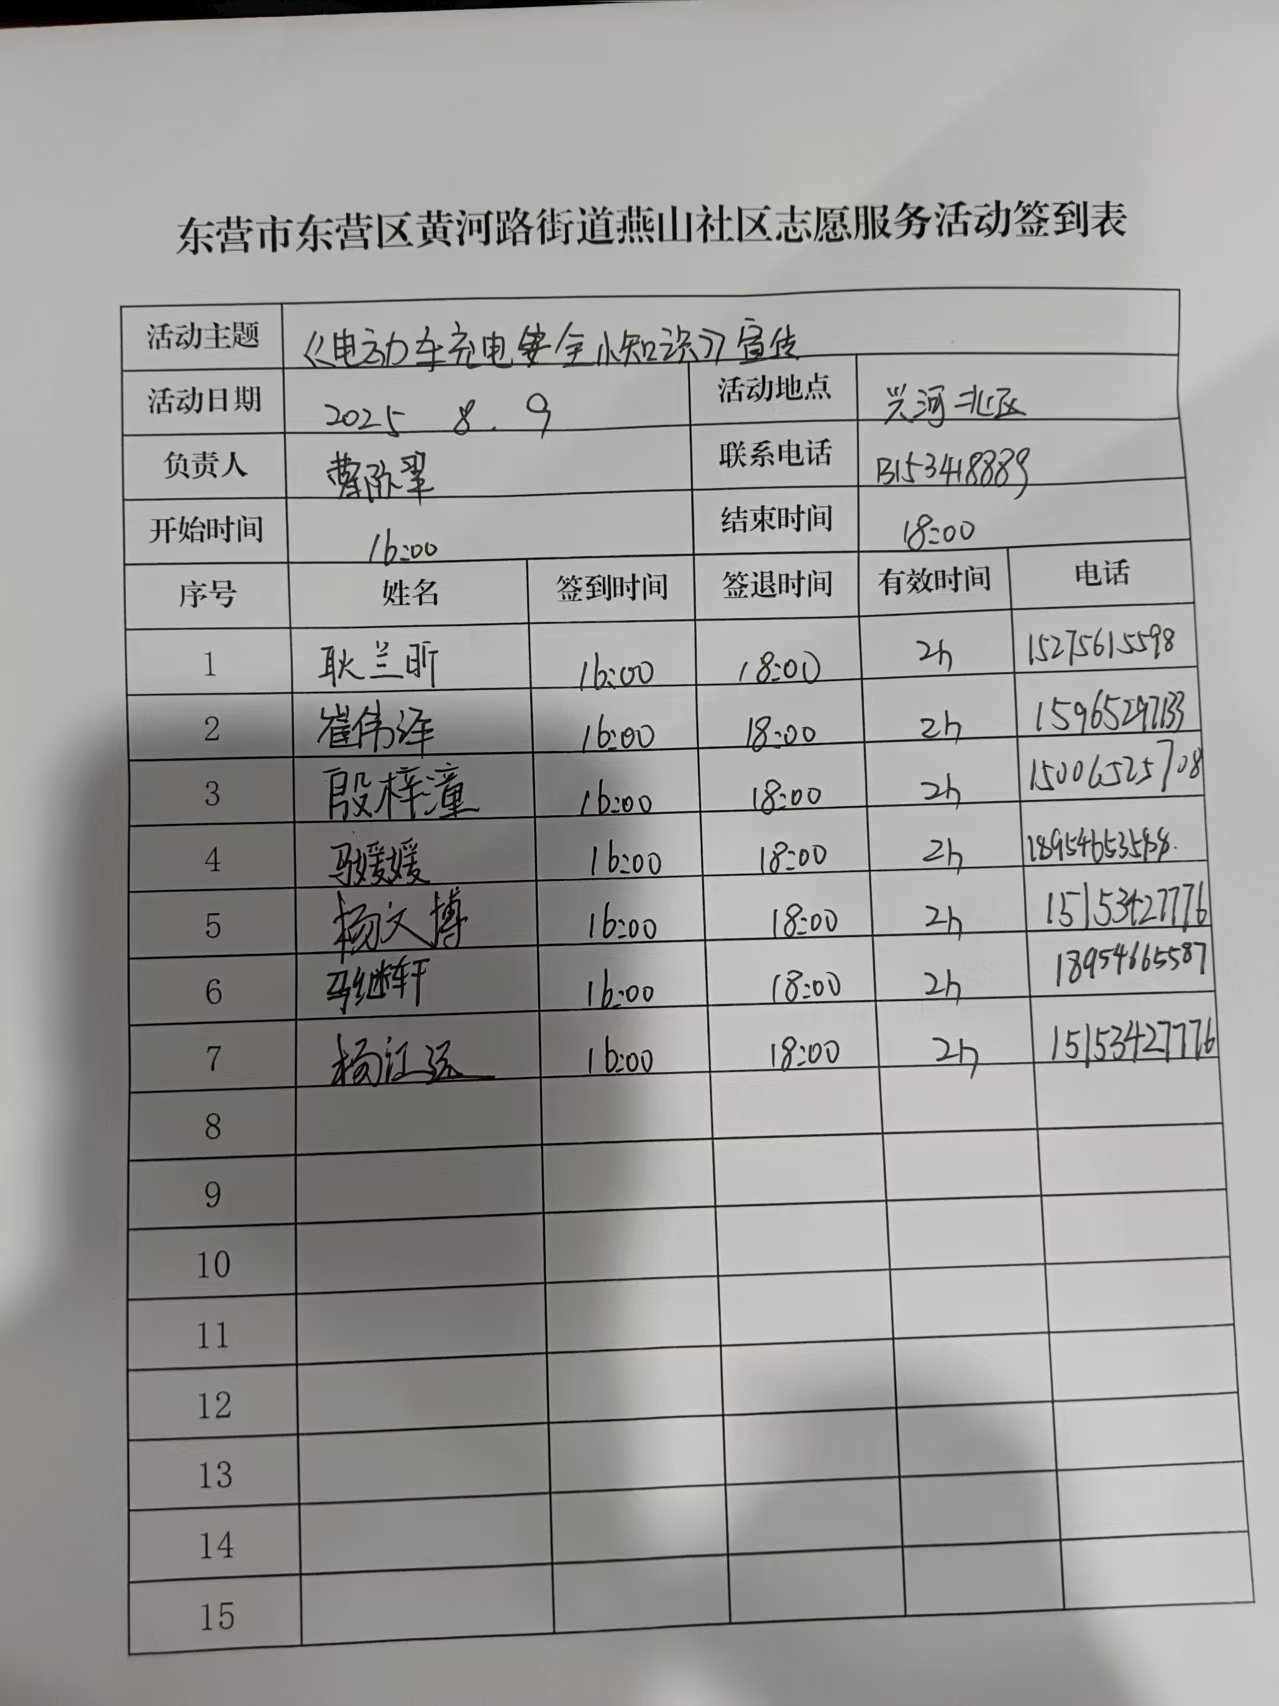 东营市东营区黄河路街道燕山社区志愿服务活动签到表
活动主题 《电动车充电安全小知识》宣传
活动日期 2025 8.9 活动地点 兴河北区
负责人 曹 翠 联系电话 13153418889
开始时间 16:00 结束时间 18:00
序号 姓名 签到时间 签退时间 有效时间 电话
1 耿兰昕 16:00 18:00 2h 15275615598
2 崔伟泽 16:00 18:00 2h 15965297133
3 殷梓潼 16:00 18:00 2h 15006525708
4 马媛媛 16:00 18:00 2h
5 杨文博 16:00 18:00 2h 15153427776
6 马继轩 16:00 18:00 2h 18954665587
7 杨江远 16:00 18:00 2h 15153427776
8
9
10
11
12
13
14
15